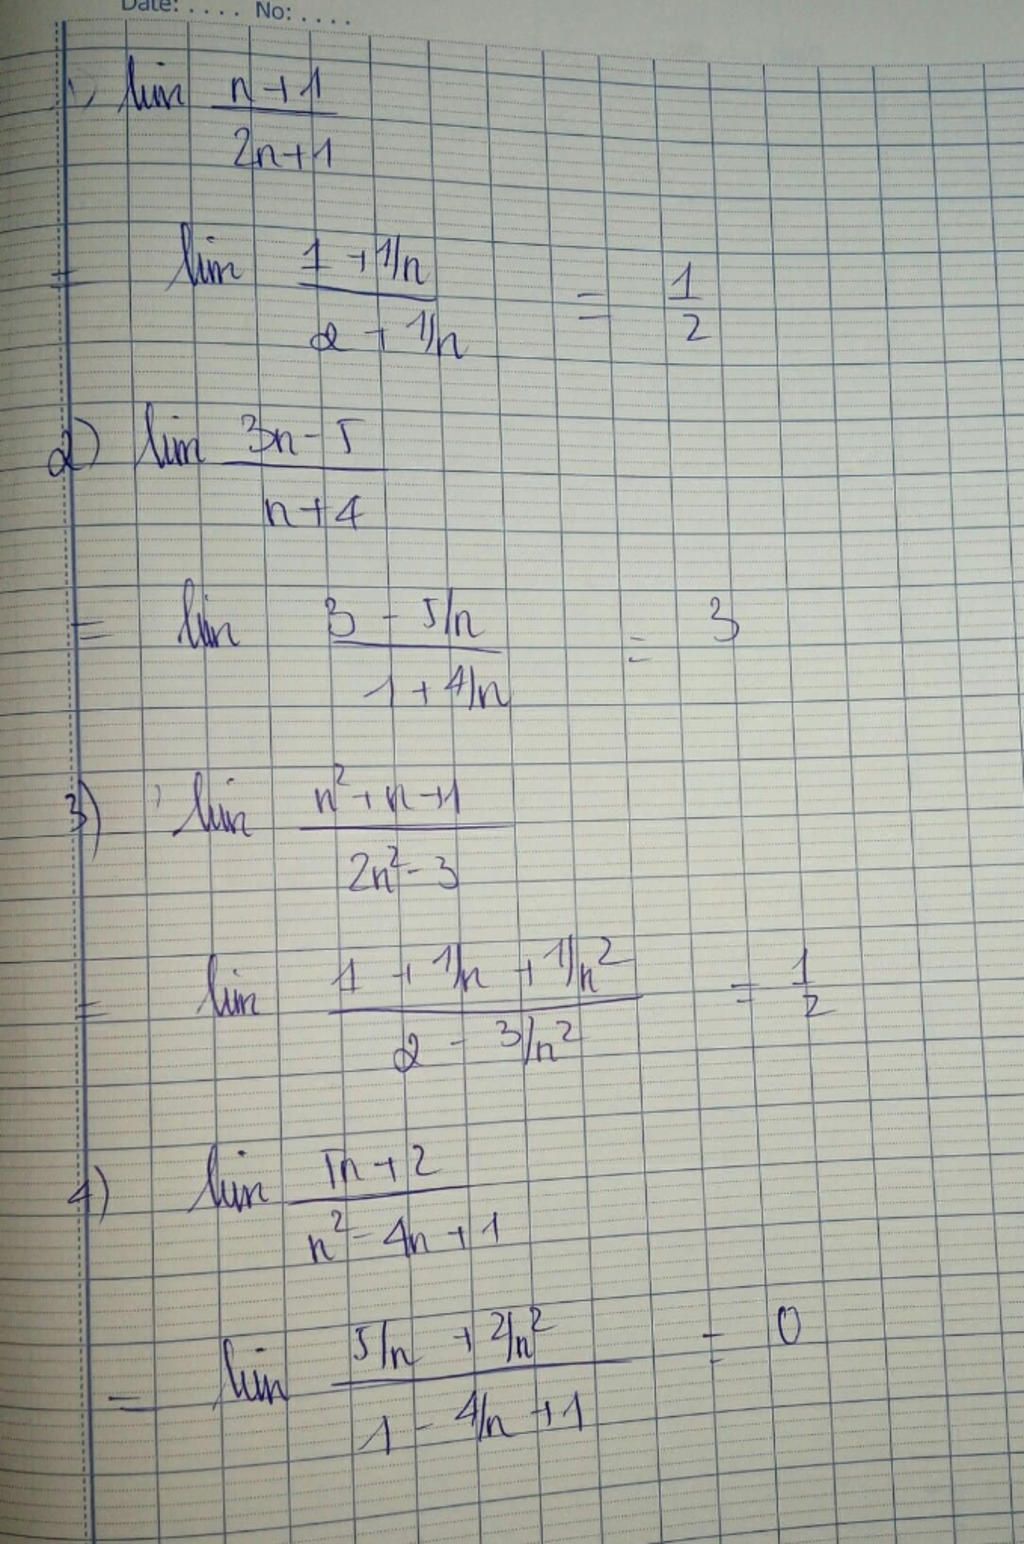 Date: .... No: ....
1) lim (n+1)/(2n+1)
= lim (1 + 1/n)/(2 + 1/n) = 1/2
2) lim (3n-5)/(n+4)
= lim (3 - 5/n)/(1 + 4/n) = 3
3) lim (n²+n+1)/(2n²-3)
= lim (1 + 1/n + 1/n²)/(2 - 3/n²) = 1/2
4) lim (5n+2)/(n²-4n+1)
= lim (5/n + 2/n²)/(1 - 4/n + 1) = 0